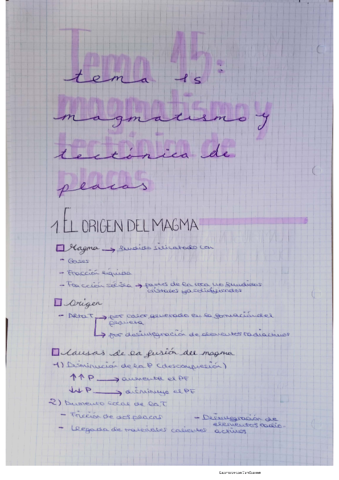 Tema 15:
magmatismo y
tectónica de
placas
tema 15
magmatismo y
tectónica de
placas
1. EL ORIGEN DEL MAGMA
Magma → fundido silicatado con
- Gases
- Fracción líquida
- Fracción sólida → partes de la roca no fundidas
Origen
- Alta T → por calor generado en la formación del
planeta
→ por desintegración de elementos radiactivos
Causas de la fusión del magma
1) Disminución de la P (descompresión)
↑↑ P → aumenta el PF
↓↓ P → disminuye el PF
2) Aumento local de la T
- Fricción de dos placas
- Desintegración de
elementos radio-
activos
- Llegada de materiales calientes